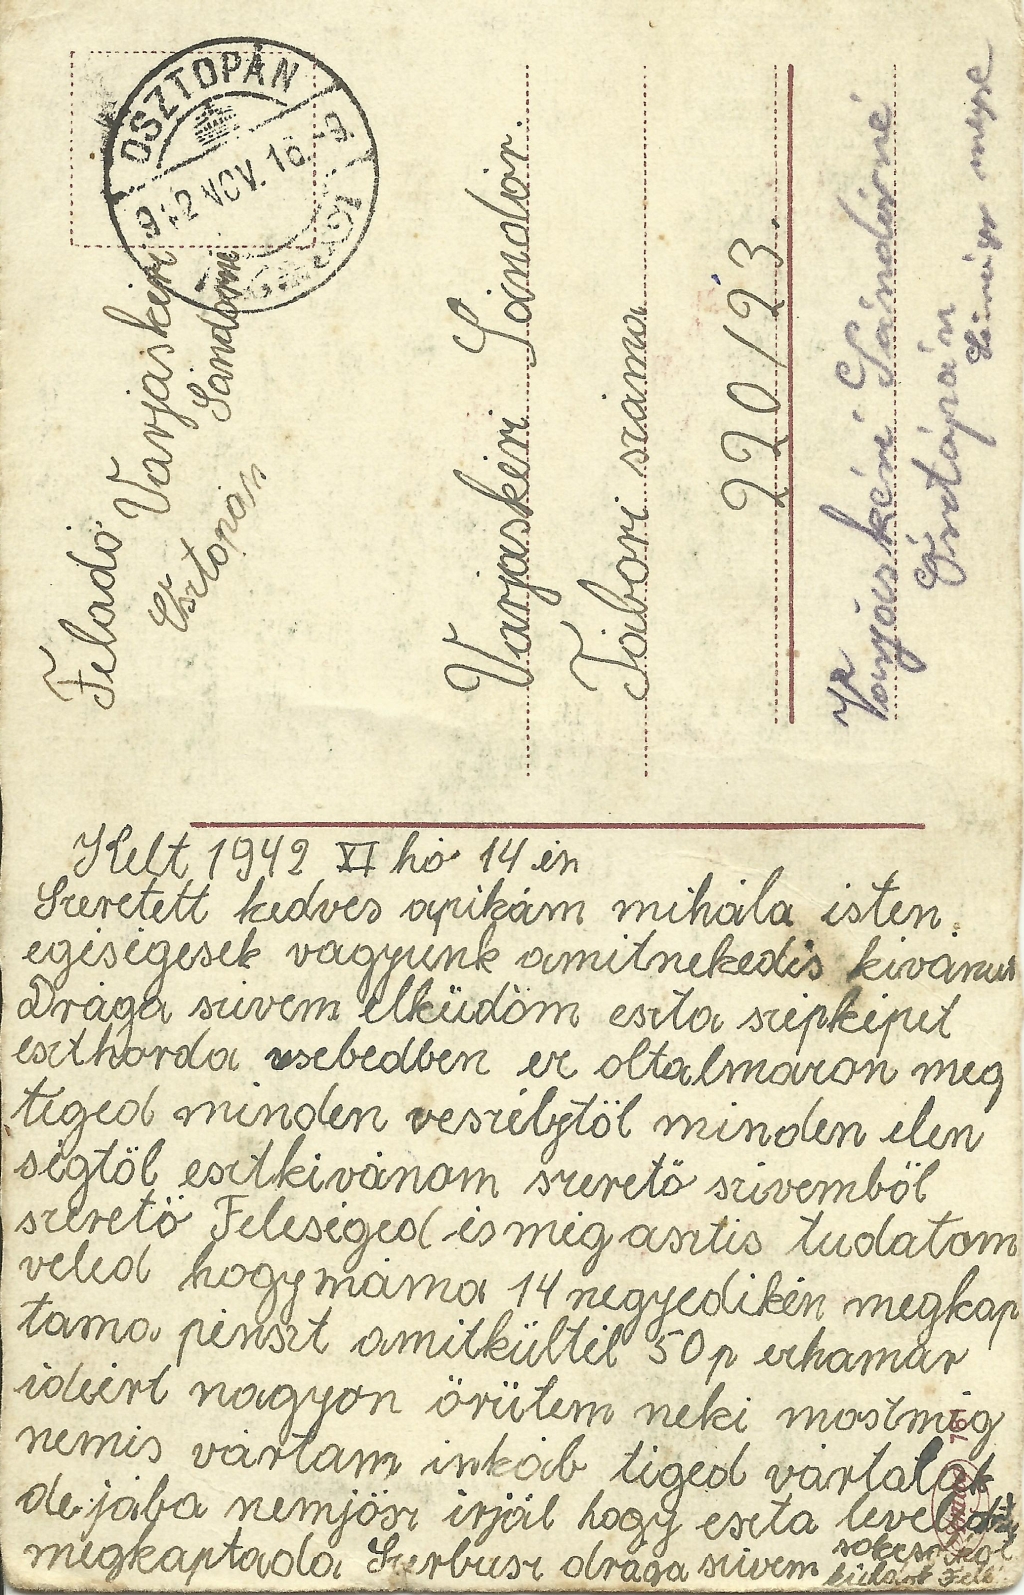 OSZTOPÁN
42 NOV. 16. 9
Feladó Varjaskéri
Sándorné
Osztopán
Varjaskéri Sándor.
Tábori száma
220/23.
Sándorné
Kelt 1942 XI hó 14 én
Szeretett kedves apikám mihála isten.
egiségesek vagyunk amitnekedis kivánus
Drága szivem elküdöm eszta szépképet
eszthorda zsebedben ez oltalmazon meg
tiged minden veszélytöl minden elen
ségtöl esztkivánom szeretö szivemböl
szeretö Feleséged és még asztis tudatom
veled hogymáma 14 negyedikén megkap
tama pénszt amitkültél 50 p ezhamar
ideért nagyon örütem neki mostmég
nemis vártam inkáb tiged vártalak
de jába nemjösz irjál hogy eszta level
megkaptada Szerbusz drága szivem